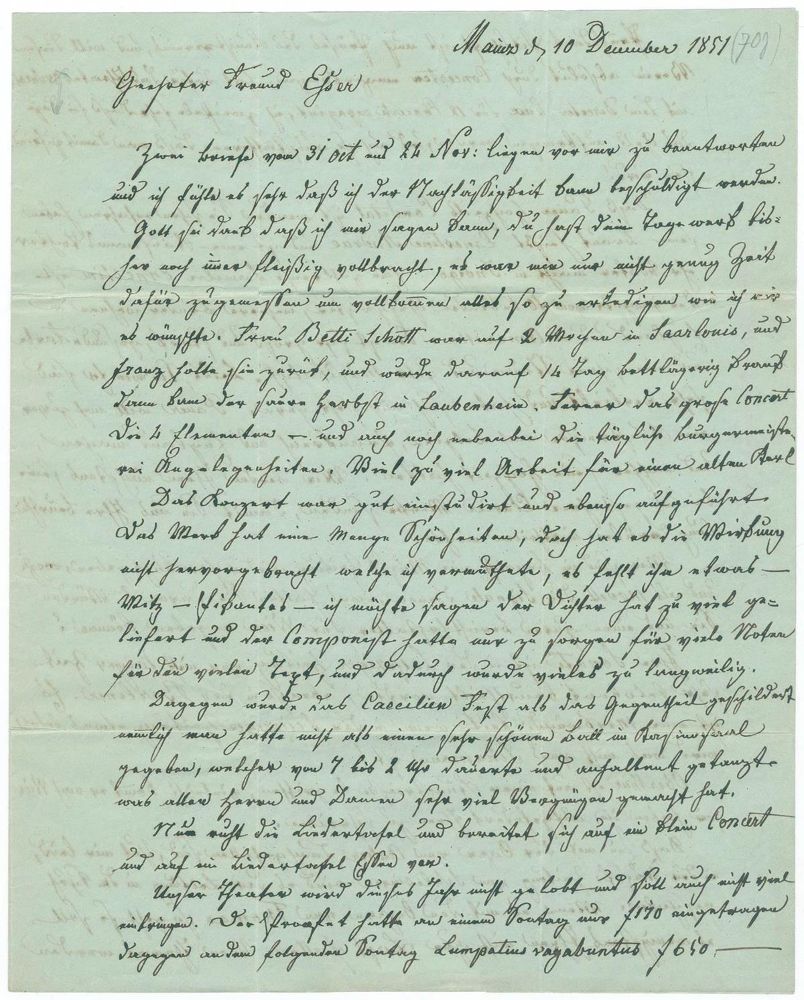 Mainz d 10 December 1851 (70j)
Geehrter Freund Esser
Zwei Briefe vom 31 oct und 24 Nov: liegen vor mir zu beantworten
und ich fühle es sehr daß ich der Nachlässigkeit kann beschuldigt werden.
Gott sei dank daß ich mir sagen kann, du hast dein Tagewerk bis-
her noch imer fleißig vollbracht, es war mir nur nicht genug Zeit
dafür zugemessen um vollkomen alles so zu erledigen wie ich
es wünschte. Frau Betti Schott war auf 2 Wochen in Saarlouis, und
Franz holte sie zurük, und wurde darauf 14 Tag bettlägerig krank
dann kam der saure Herbst in Laubenheim. Ferner das große Concert
die 4 Elementen — und auch noch nebenbei die täglich Burgermeiste-
rei Angelegenheiten. Viel zu viel Arbeit für einen alten Kerl
Das Konzert war gut einstudirt und ebenso aufgeführt
Das Werk hat eine Menge Schönheiten, doch hat es die Wirkung
nicht hervorgebracht welche ich vermuthete, es fehlt ihm etwas —
Witz — Pikantes — ich möchte sagen der Dichter hat zu viel ge-
liefert und der Componist hatte nur zu sorgen für viele Noten
für den vielen Text, und dadurch wurde vieles zu langweilig.
Dagegen wurde das Caecilien Fest als das Gegentheil geschildert
nemlich man hatte nicht als einen sehr schönen Ball im Kasinosaal
gegeben, welcher von 7 bis 2 Uhr dauerte und anhaltent getanzt
was allen Herrn und Damen sehr viel Vergnügen gemacht hat.
Nun ruht die Liedertafel und bereitet sich auf ein klein Concert
und auf ein Liedertafel Essen vor.
Unser Theater wird dieses Jahr nicht gelobt und soll auch nicht viel
einbringen. Der Profet hatte an einem Sontag nur f 170 eingetragen
dagegen an dem folgenden Sontag Lumpatius vagabuntus f 650. —